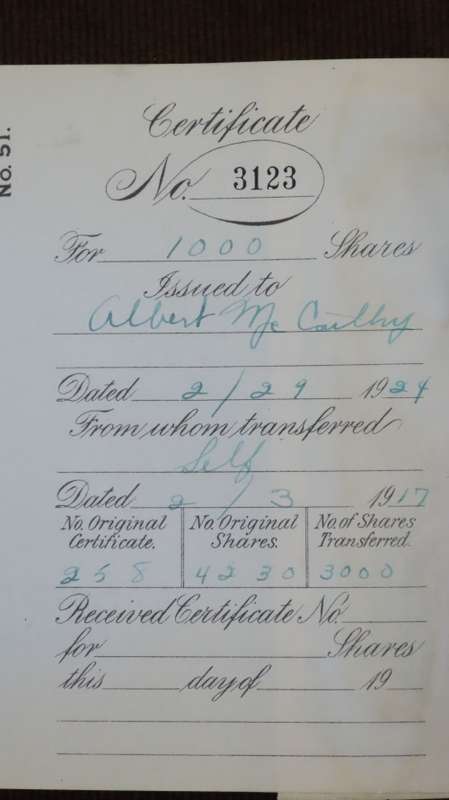 No. 51.
Certificate
No. 3123
For 1000 Shares
Issued to
Albert McCarthy
Dated 2/29 1924
From whom transferred
Self
Dated 2/3 1917
No. Original Certificate. No. Original Shares. No of Shares Transferred.
258 4230 3000
Received Certificate No.
for Shares
this day of 19